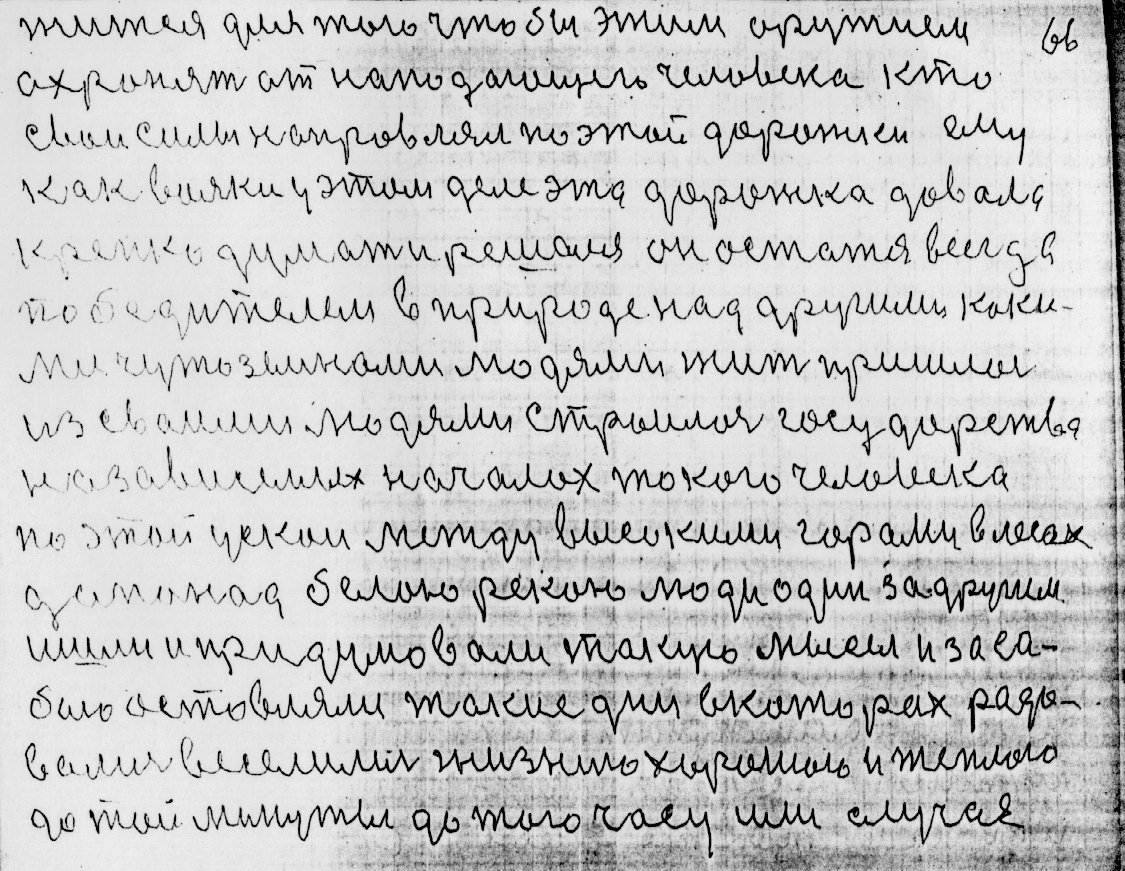 жится для того чтобы этим оружием 66
охронят от нападающего человека кто
свои силы направлял по этой дорожки ему
как всяки у этом деле эта дорожка довала
крепко думат и решался он остатся всегда
победителем в природе над другими каки-
ми чужоземноми людями жит пришлос
из своими людями строился государства
на зависемых началах такого человека
по этой ускои между высокими горами в лесах
да и над белою рекою люди один за другим
шли и придумовали такую мысел и за са-
бою остовляли такие дни в которах радо-
валися веселилися жизнью хорошою и теплою
до той минуты до того часу или случая